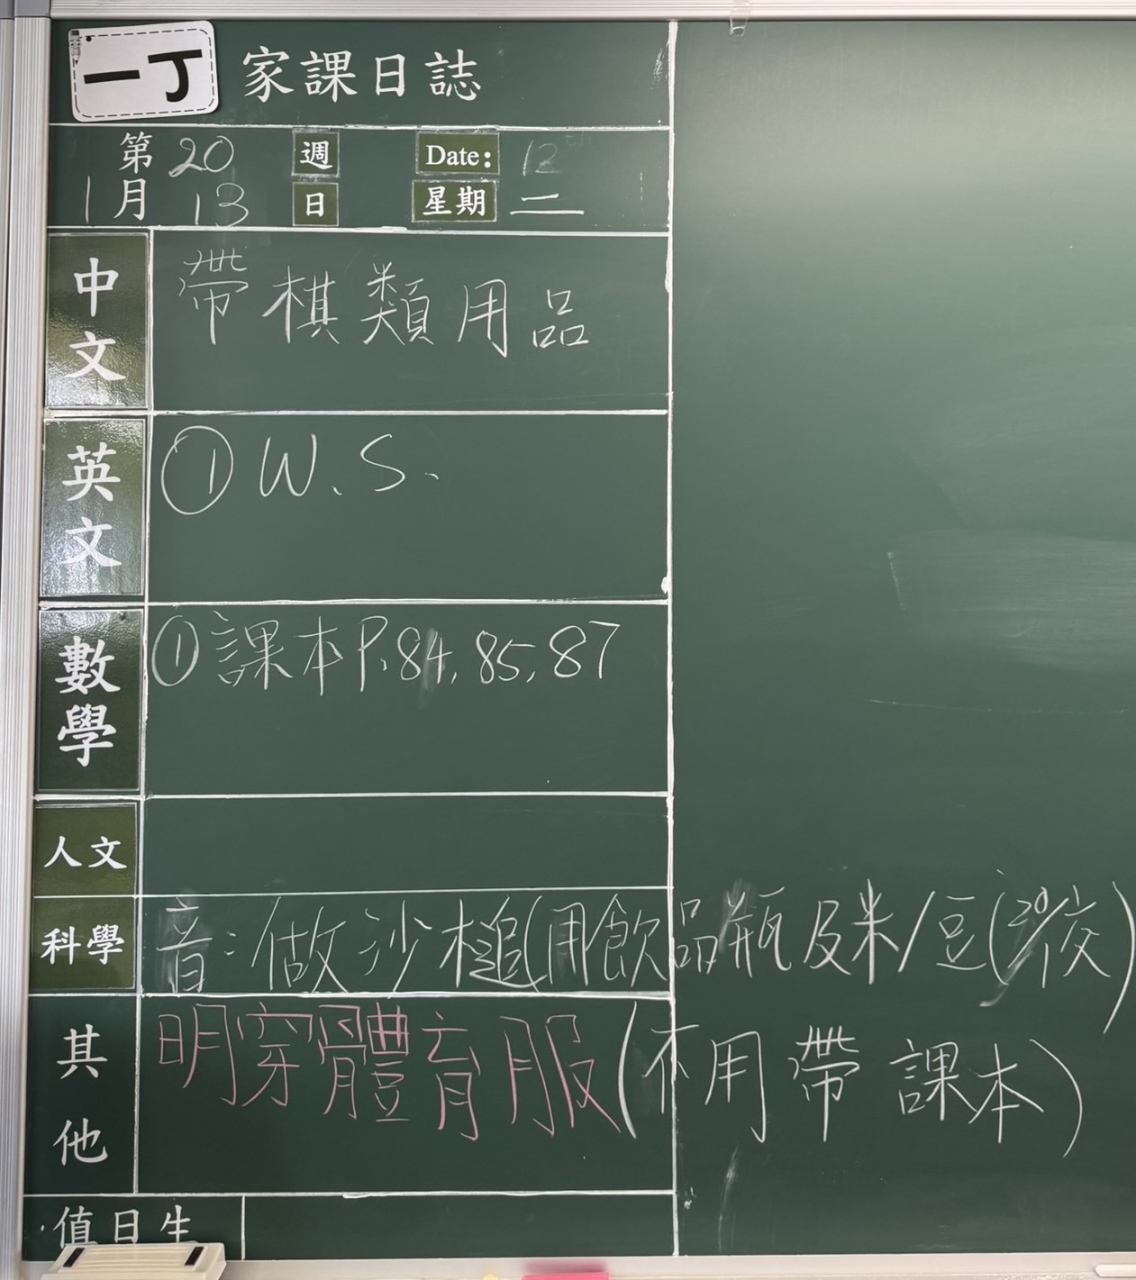 一丁 家課日誌
第 20 週 Date: 12
1月 13 日 星期 二
中文 帶棋類用品
英文 ① W.S.
數學 ① 課本P.84,85,87
人文
科學 音:做沙槌(用飲品瓶及米/豆(20/1交)
其他 明穿體育服(不用帶課本)
值日生